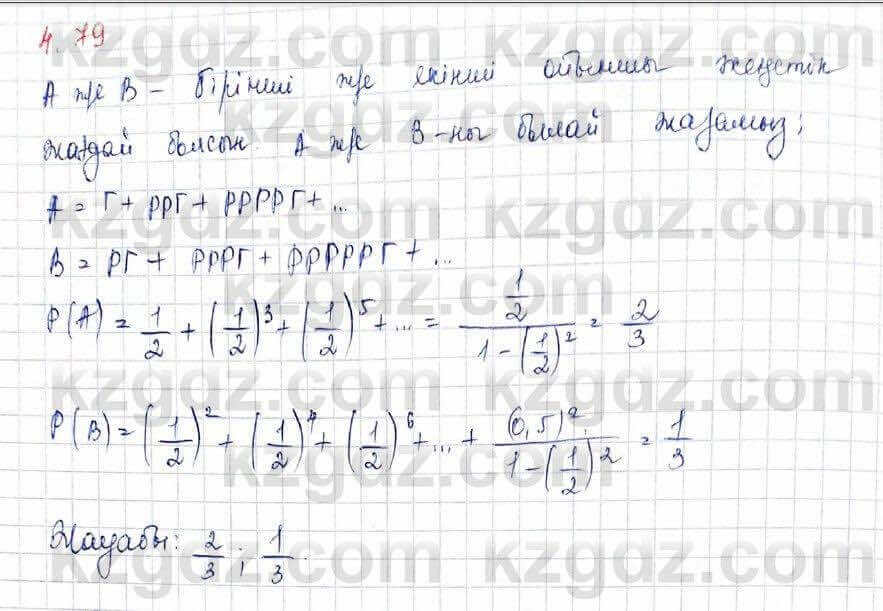 4.79
А және В – бірінші және екінші ойыншы жеңетін
жағдай болсын. А және В-ны былай жазамыз:
A = Г + РРГ + РРРРГ + ...
B = РГ + РРРГ + РРРРРГ + ...
P(A) = 1/2 + (1/2)^3 + (1/2)^5 + ... = (1/2)/(1-(1/2)^2) = 2/3
P(B) = (1/2)^2 + (1/2)^4 + (1/2)^6 + ... + (0,5)^2/(1-(1/2)^2) = 1/3
Жауабы: 2/3 ; 1/3.
kzgdz.com